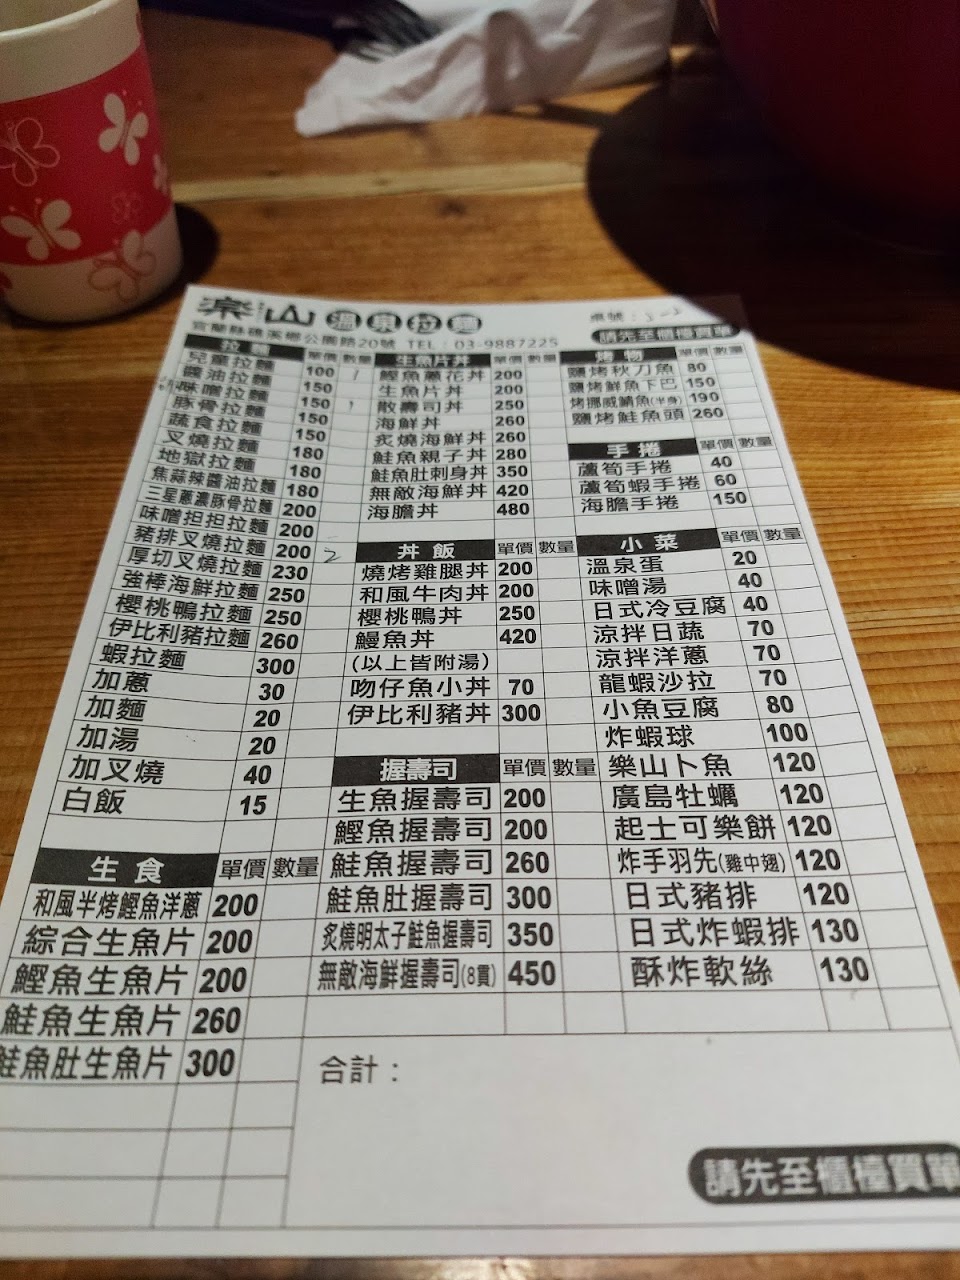 樂山 溫泉拉麵
桌號：
宜蘭縣礁溪鄉公園路20號 TEL：03-9887225
請先至櫃檯買單
拉麵 單價 數量
兒童拉麵 100
醬油拉麵 150
味噌拉麵 150
豚骨拉麵 150
蔬食拉麵 150
叉燒拉麵 180
地獄拉麵 180
焦蒜辣醬油拉麵 180
三星蔥濃豚骨拉麵 200
味噌担担拉麵 200
豬排叉燒拉麵 200 2
厚切叉燒拉麵 230
強棒海鮮拉麵 250
櫻桃鴨拉麵 250
伊比利豬拉麵 260
蝦拉麵 300
加蔥 30
加麵 20
加湯 20
加叉燒 40
白飯 15
生食 單價 數量
和風半烤鰹魚洋蔥 200
綜合生魚片 200
鰹魚生魚片 200
鮭魚生魚片 260
鮭魚肚生魚片 300
生魚片丼 單價 數量
鰹魚蔥花丼 200
生魚片丼 200
散壽司丼 250
海鮮丼 260
炙燒海鮮丼 260
鮭魚親子丼 280
鮭魚肚刺身丼 350
無敵海鮮丼 420
海膽丼 480
丼飯 單價 數量
燒烤雞腿丼 200
和風牛肉丼 200
櫻桃鴨丼 250
鰻魚丼 420
(以上皆附湯)
吻仔魚小丼 70
伊比利豬丼 300
握壽司 單價 數量
生魚握壽司 200
鰹魚握壽司 200
鮭魚握壽司 260
鮭魚肚握壽司 300
炙燒明太子鮭魚握壽司 350
無敵海鮮握壽司(8貫) 450
烤物 單價 數量
鹽烤秋刀魚 80
鹽烤鮮魚下巴 150
烤挪威鯖魚(半身) 190
鹽烤鮭魚頭 260
手捲 單價 數量
蘆筍手捲 40
蘆筍蝦手捲 60
海膽手捲 150
小菜 單價 數量
溫泉蛋 20
味噌湯 40
日式冷豆腐 40
涼拌日蔬 70
涼拌洋蔥 70
龍蝦沙拉 70
小魚豆腐 80
炸蝦球 100
樂山卜魚 120
廣島牡蠣 120
起士可樂餅 120
炸手羽先(雞中翅) 120
日式豬排 120
日式炸蝦排 130
酥炸軟絲 130
合計：
請先至櫃檯買單